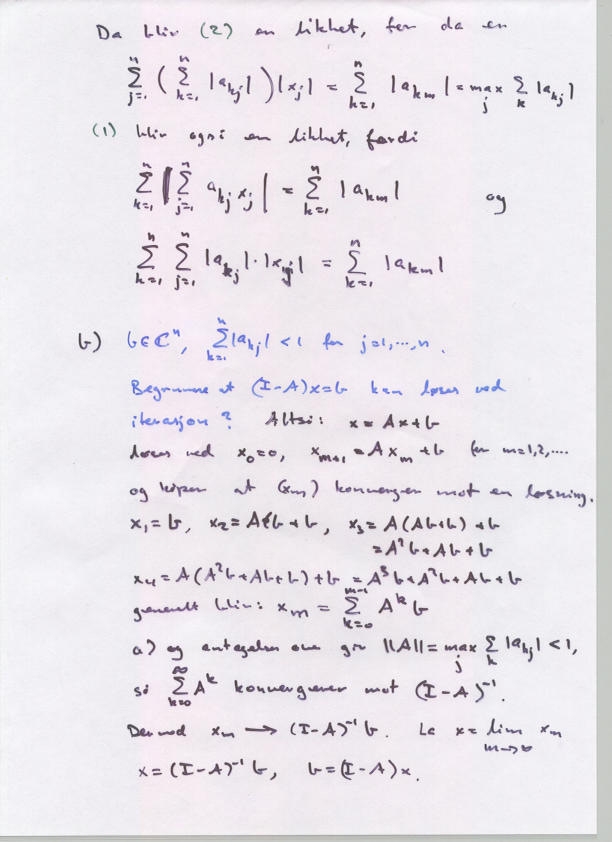 Da blir (2) en likhet, for da er
∑_{j=1}^{n} ( ∑_{k=1}^{n} |a_{kj}| ) |x_j| = ∑_{k=1}^{n} |a_{km}| = max_j ∑_k |a_{kj}|
(1) blir også en likhet, fordi
∑_{k=1}^{n} | ∑_{j=1}^{n} a_{kj} x_j | = ∑_{k=1}^{n} |a_{km}| og
∑_{k=1}^{n} ∑_{j=1}^{n} |a_{kj}|·|x_j| = ∑_{k=1}^{n} |a_{km}|
b) b∈ℂ^n, ∑_{k=1}^{n} |a_{kj}| < 1 for j=1,…,n.
Begrunne at (I-A)x=b kan løses ved
iterasjon? Altså: x = Ax+b
løses ved x_0=0, x_{m+1} = A x_m + b for m=1,2,....
og håper at (x_m) konvergerer mot en løsning.
x_1 = b, x_2 = Ab+b, x_3 = A(Ab+b)+b
= A^2b+Ab+b
x_4 = A(A^2b+Ab+b)+b = A^3b+A^2b+Ab+b
generelt blir: x_m = ∑_{k=0}^{m-1} A^k b
a) og antagelsen om gir ||A|| = max_j ∑_k |a_{kj}| < 1,
så ∑_{k=0}^{∞} A^k konvergerer mot (I-A)^{-1}.
Dermed x_m → (I-A)^{-1} b. La x = lim_{m→∞} x_m
x = (I-A)^{-1} b, b = (I-A)x.